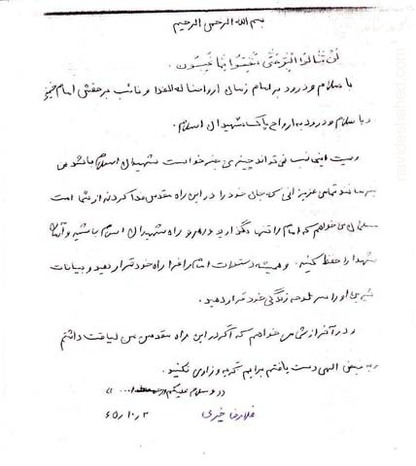 بسم الله الرحمن الرحیم
لَنْ تَنالُوا الْبِرَّ حَتّی تُنْفِقُوا مِمّا تُحِبُّونَ.
با سلام و درود به امام زمان ارواحنا له الفدا و نائب برحقش امام خمینی
و با سلام و درود به ارواح پاک شهیدان اسلام.
وصیت اینجانب نمی‌تواند چیزی جز خواست شهیدان اسلام باشد
تمامی عزیزانی که جان خود را در این راه مقدس فدا کردند از شما امت
مسلمان می‌خواهم که امام را تنها نگذارید و رهرو راه شهیدان اسلام باشید و
شهدا را حفظ کنید. و همیشه دستورات امام را فرا راه خود قرار دهید و بیانات
شیرین او را سر لوحه زندگی خود قرار دهید.
و در آخر از شما می‌خواهم که اگر در این راه مقدس من لیاقت داشتم
و به فیض الهی دست یافتم برایم گریه و زاری نکنید.
والسلام علیکم
غلامرضا خیری
۶۵/۱۰/۳